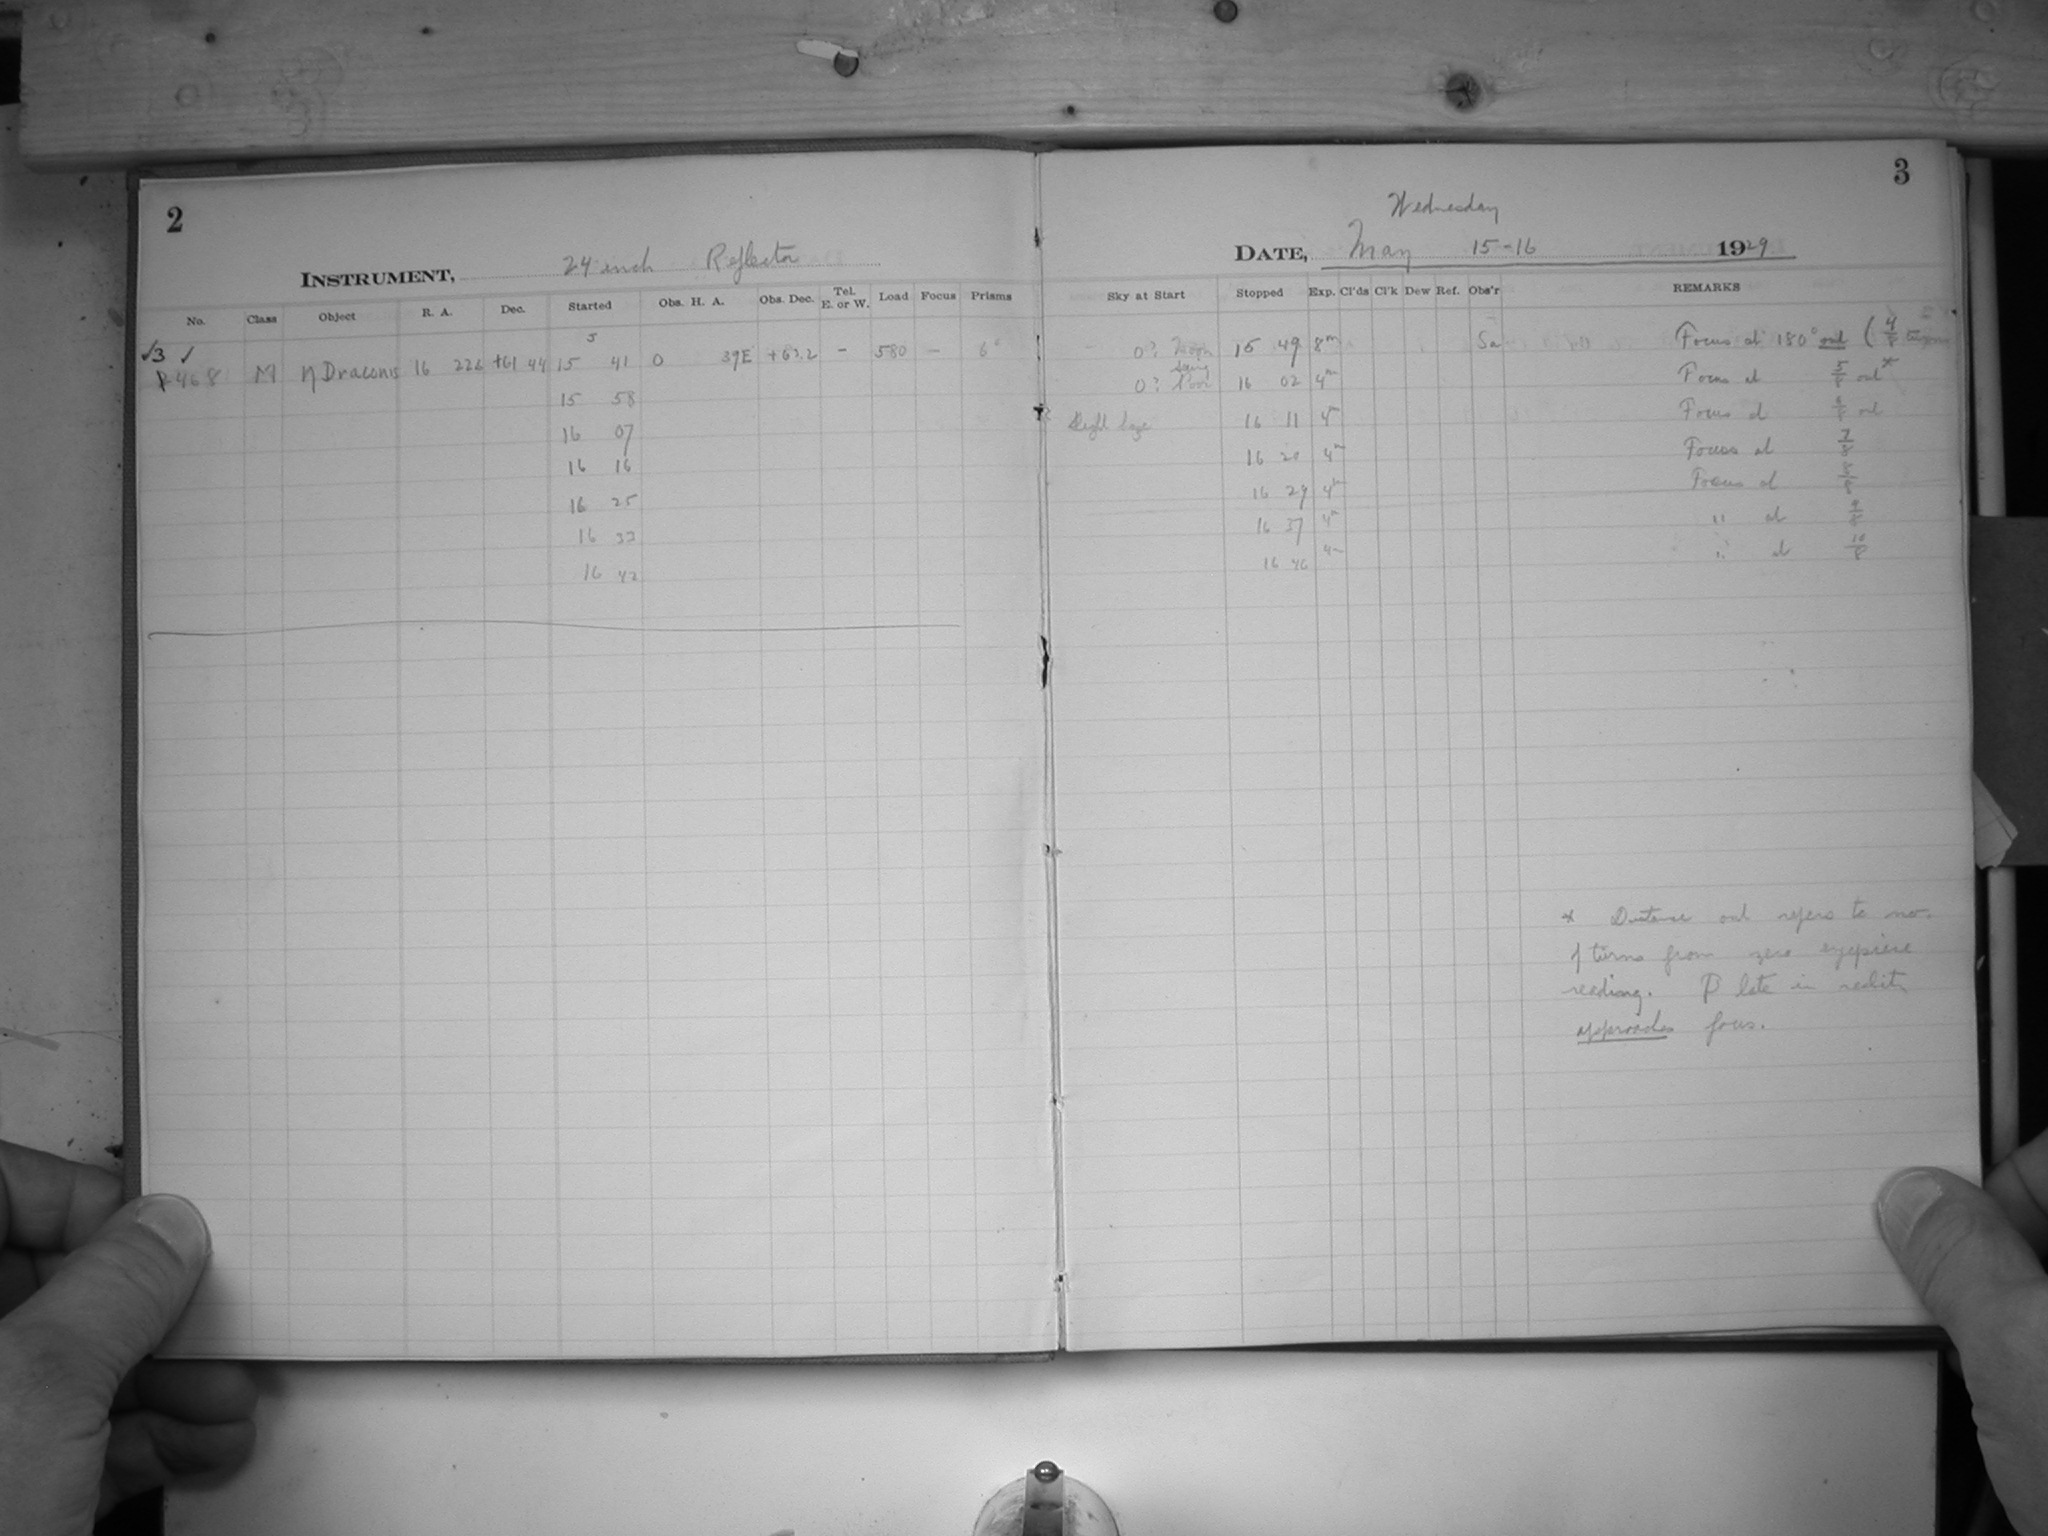 2
INSTRUMENT, 24 inch Reflector
No. Class Object R. A. Dec. Started Obs. H. A. Obs. Dec. Tel. E. or W. Load Focus Prisms
5
√3 ✓
468 M η Draconis 16 226 +61 44 15 41 0 39E +63.2 - 580 - 6°
15 58
16 07
16 16
16 25
16 33
16 42
3
Wednesday
DATE, May 15-16 1929
Sky at Start Stopped Exp. Cl'ds Cl'k Dew Ref. Obs'r REMARKS
0? Moon 15 49 8m Sa Focus at 180° out (4/8
0? Poor 16 02 4m Focus at 5/8 out*
16 11 4m Focus at out
16 20 4m Focus at 7/8
16 29 4m Focus at
16 37 4m " at 9/8
16 46 4m " at 10/8
* Distance out refers to no.
of turns from zero eyepiece
reading. Plate in reality
approaches focus.